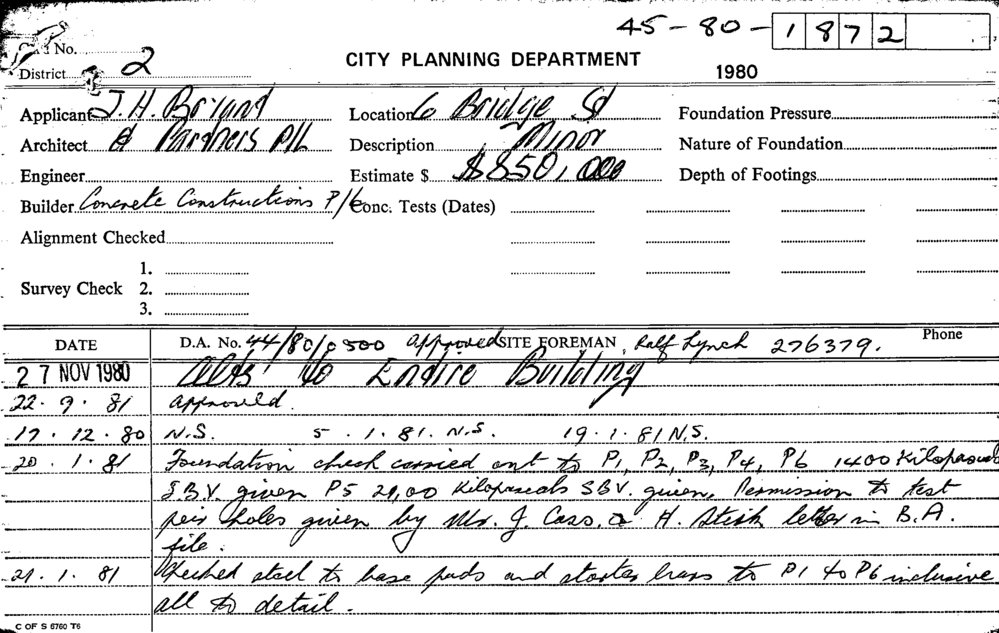 45-80-1872
Card No.
District 2
CITY PLANNING DEPARTMENT
1980
Applicant J. H. Briand Location 6 Bridge St Foundation Pressure
Architect & Partners P/L Description Minor Nature of Foundation
Engineer Estimate $ $850,000 Depth of Footings
Builder Concrete Constructions P/L Conc. Tests (Dates)
Alignment Checked
1.
Survey Check 2.
3.
DATE D.A. No. 44/80/0500 approved SITE FOREMAN Ralf Lynch 276379. Phone
27 NOV 1980 Alts to Entire Building
22. 9. 81 approved.
17. 12. 80 N.S. 5. 1. 81. N.S. 19. 1. 81 N.S.
20. 1. 81 Foundation check carried out to P1, P2, P3, P4, P6 1400 Kilopascals
S.B.V. given P5 20,00 Kilopascals SBV. given. Permission to test
peir holes given by Mr. J. Cass. & H. letter in B.A.
file.
21. 1. 81 Checked steel to base pads and starter bars to P1 to P6 inclusive
all to detail.
C OF S 6760 T6